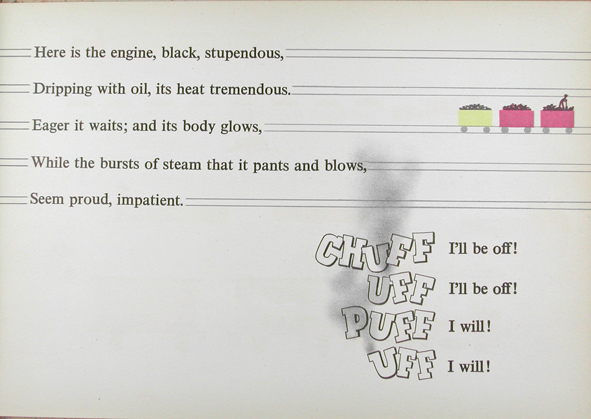 Here is the engine, black, stupendous,
Dripping with oil, its heat tremendous.
Eager it waits; and its body glows,
While the bursts of steam that it pants and blows,
Seem proud, impatient.
CHUFF I'll be off!
UFF I'll be off!
PUFF I will!
UFF I will!